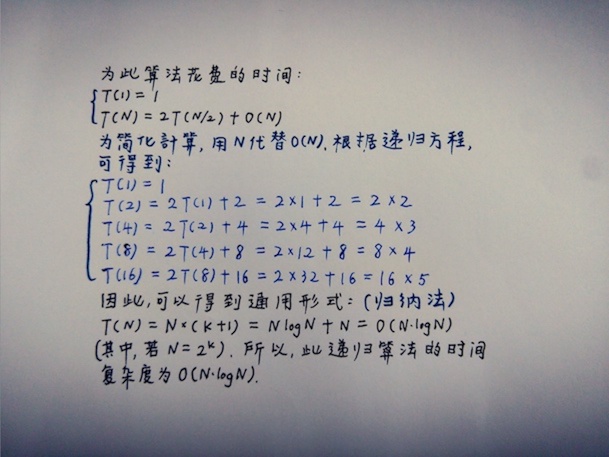 为此算法花费的时间:
T(1) = 1
T(N) = 2T(N/2) + O(N)
为简化計算, 用N代替O(N). 根据递归方程,
可得到:
T(1) = 1
T(2) = 2T(1) + 2 = 2×1 + 2 = 2×2
T(4) = 2T(2) + 4 = 2×4 + 4 = 4×3
T(8) = 2T(4) + 8 = 2×12 + 8 = 8×4
T(16) = 2T(8) + 16 = 2×32 + 16 = 16×5
因此, 可以得到通用形式: (归纳法)
T(N) = N×(k+1) = NlogN + N = O(N·logN)
(其中, 若 N = 2ᵏ). 所以, 此递归算法的时间
复杂度为 O(N·logN).